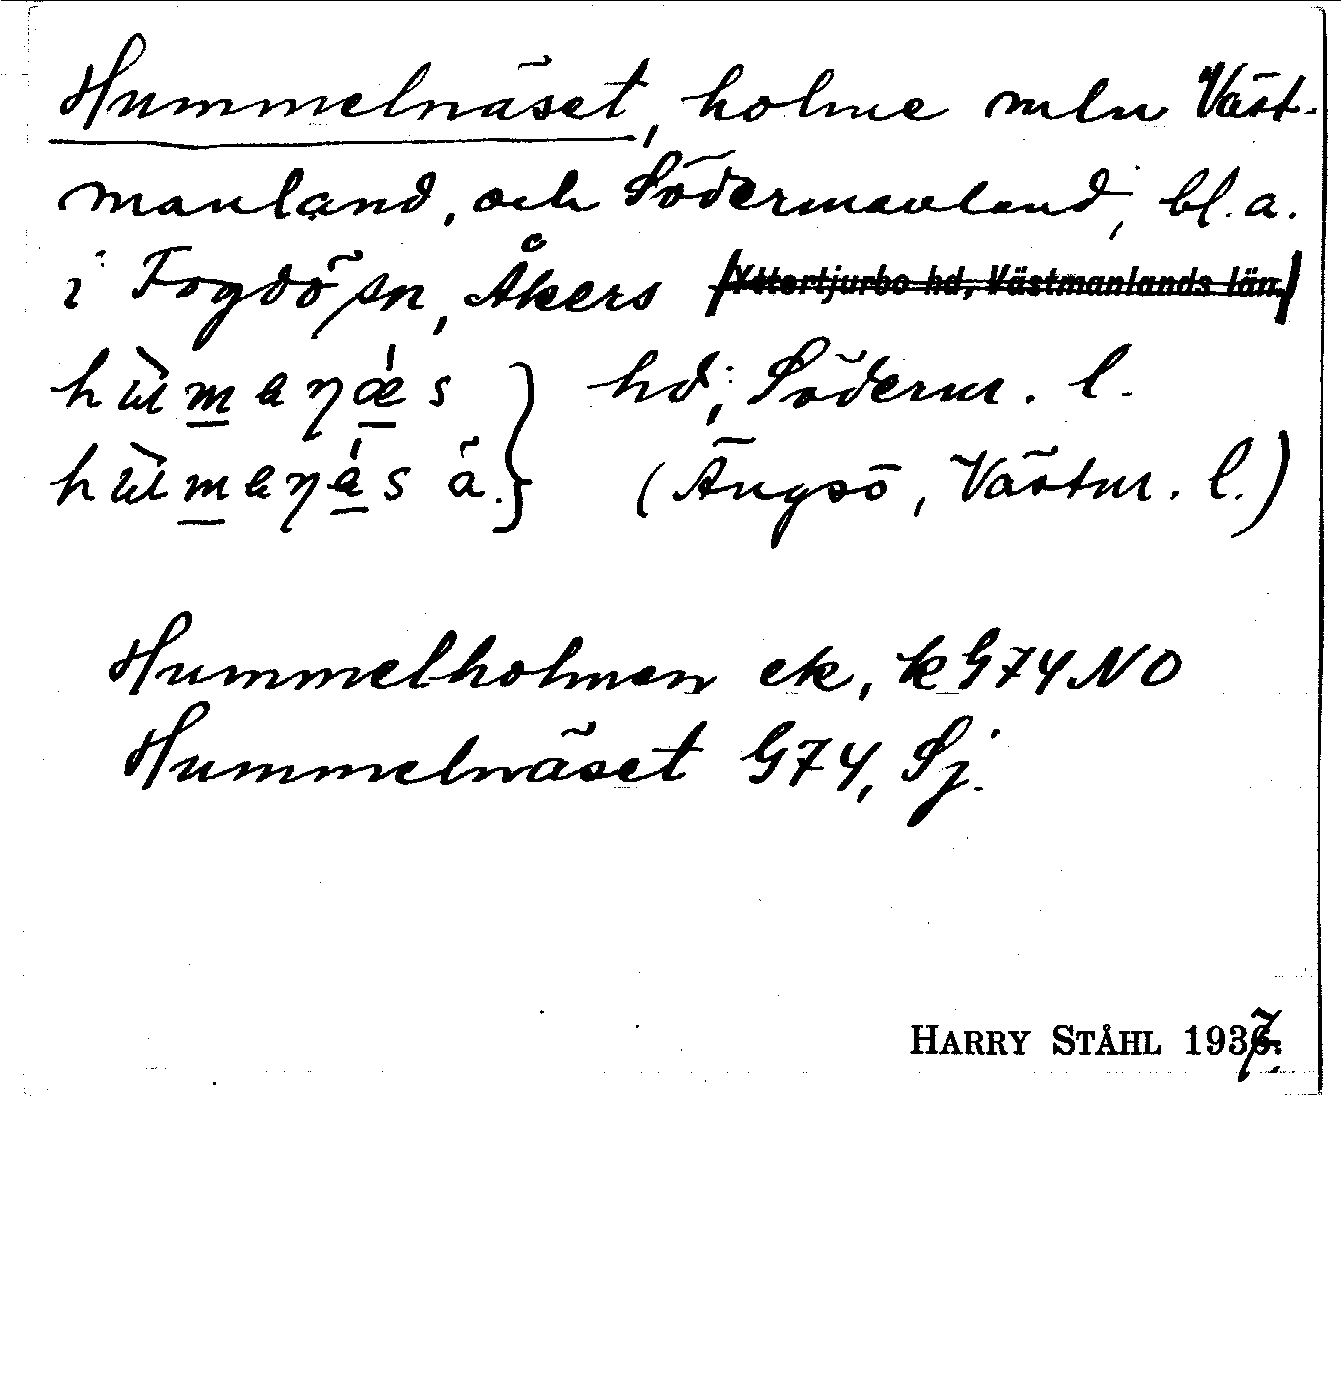 Hummelnäset, holme mln Väst-
manland, och Södermanland, bl. a.
i Fogdö sn, Åkers (Yttertjurbo hd, Västmanlands län.)
hd, Söderm. l.
(Ängsö, Västm. l.)
Hummelholmen ek, k G74 NO
Hummelnäset G74, Sj.
HARRY STÅHL 1937.